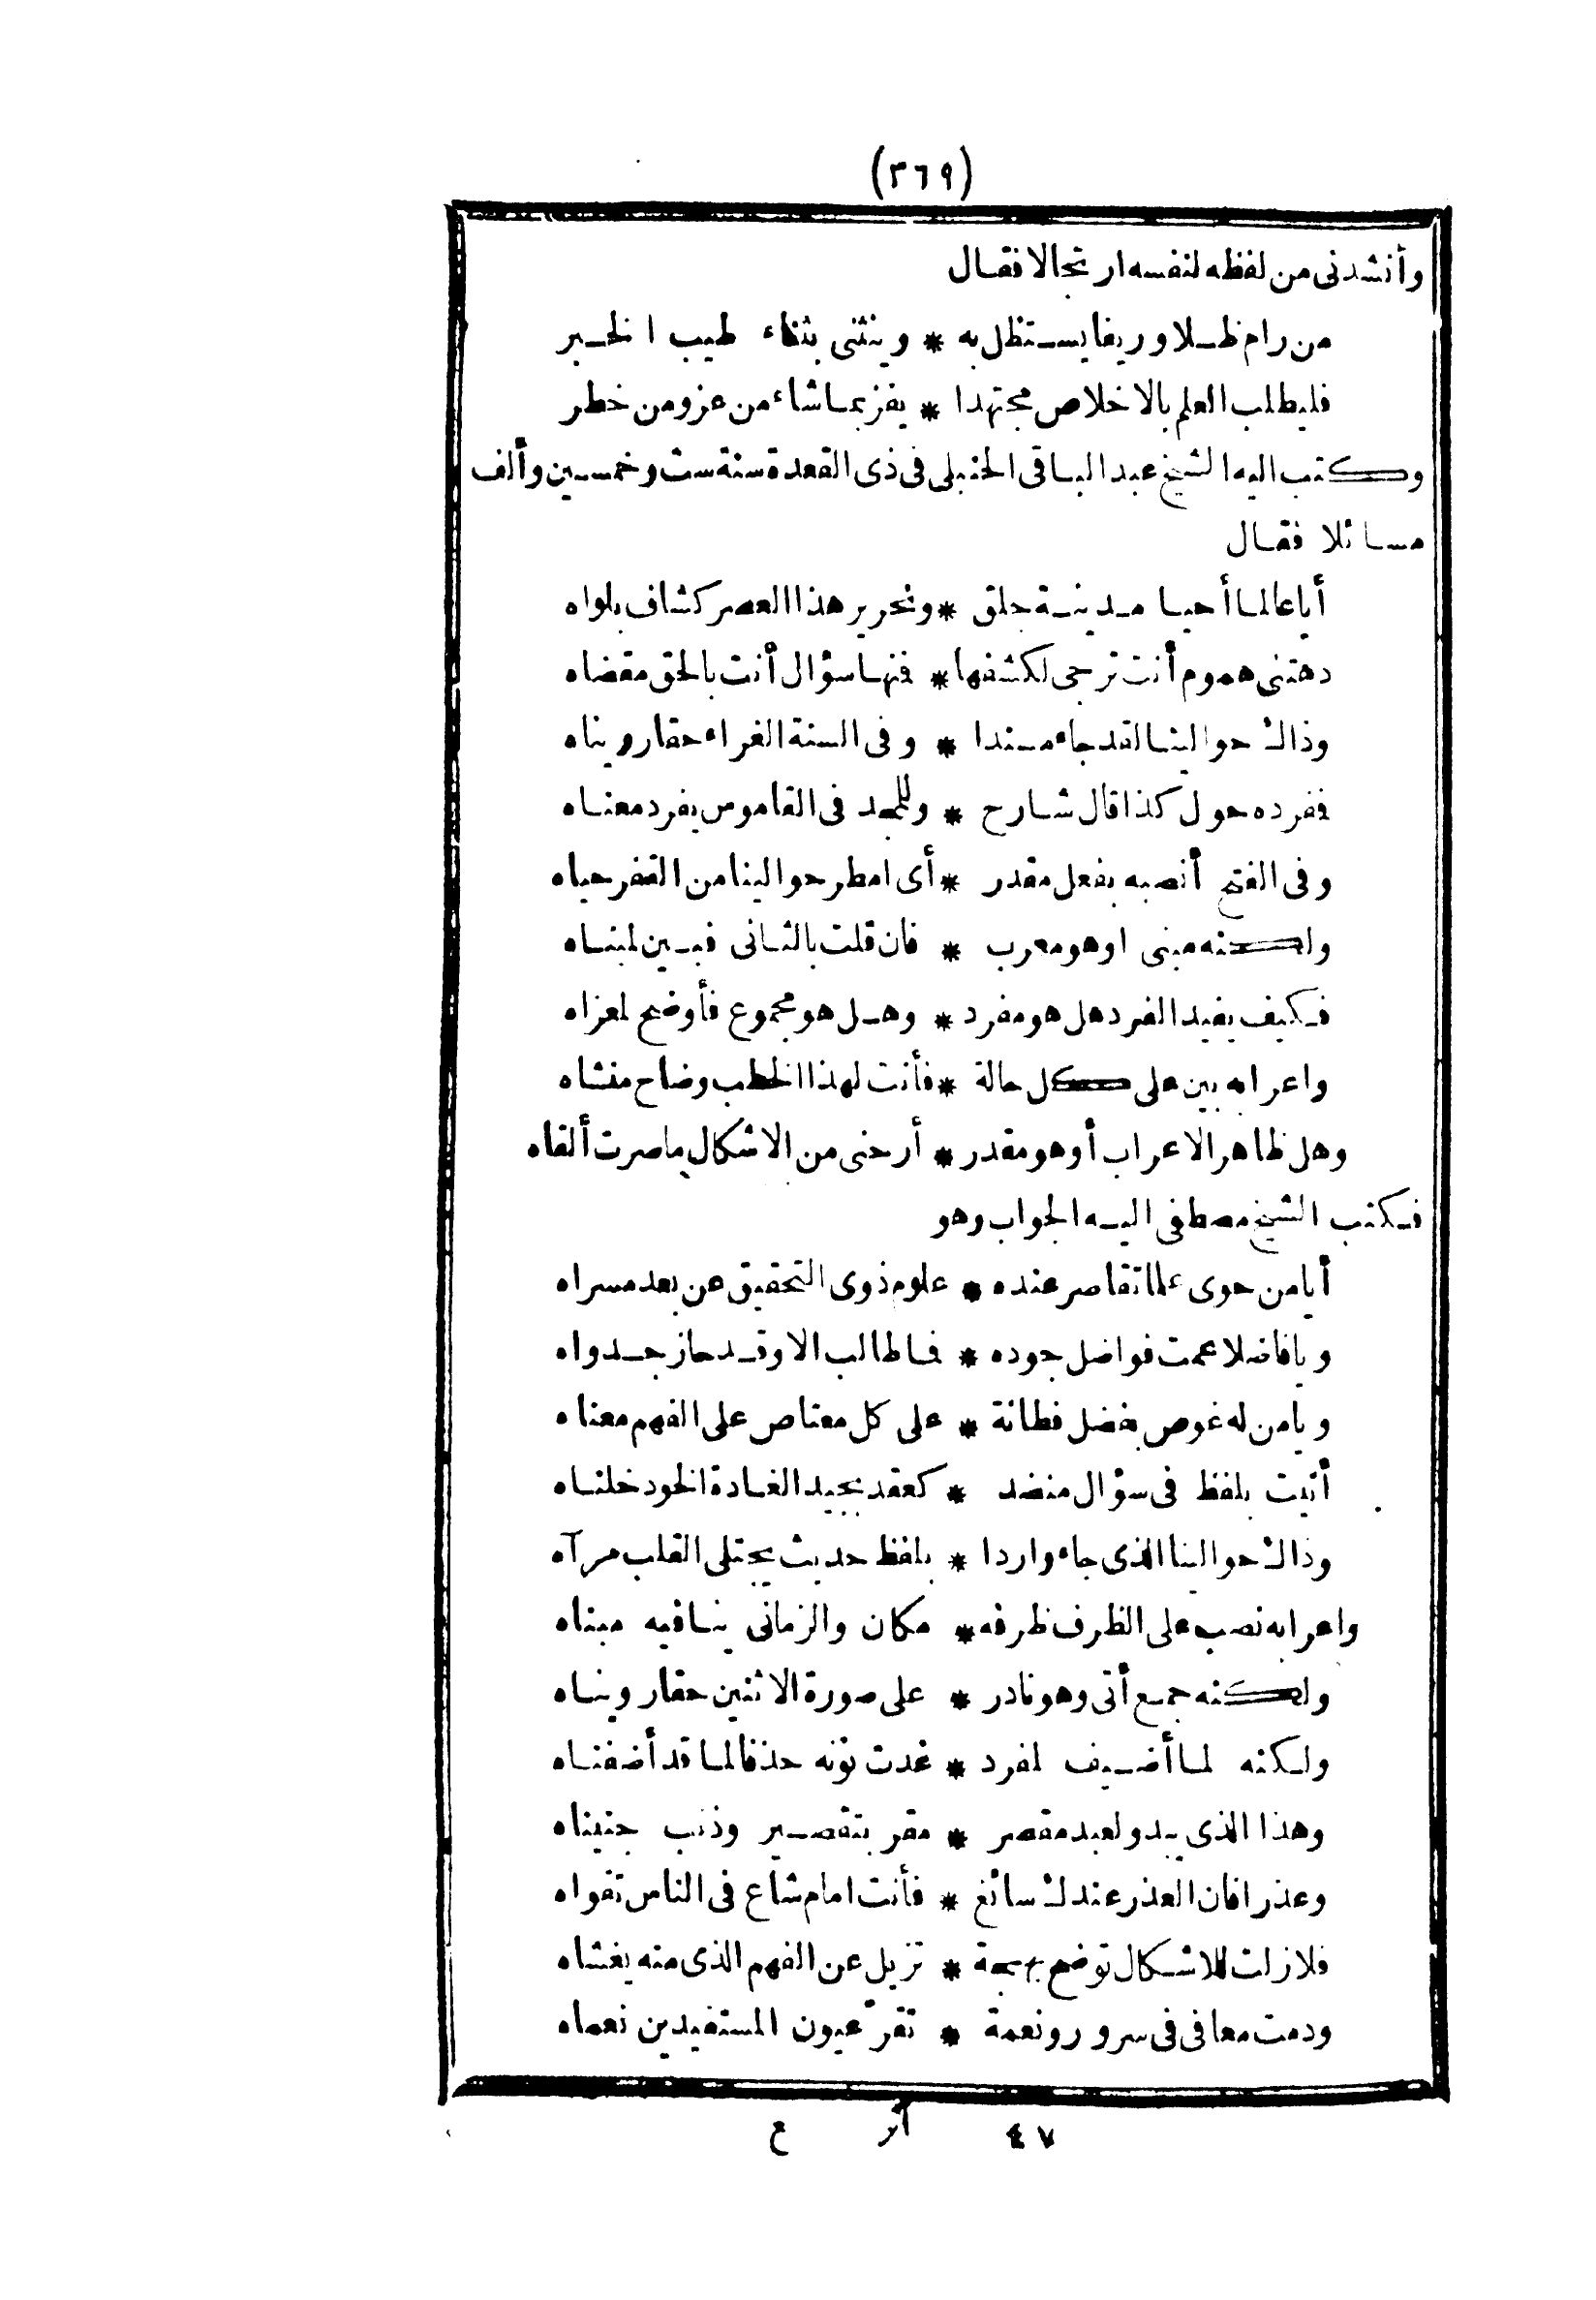 (٣٦٩)
وأنشدنى من لفظه لنفسه ارتجالا فقال
من رام ظلا وريفا يستظل به * وينثنى بثناء طيب الخبر
فليطلب العلم بالاخلاص مجتهدا * يفز بما شاء من عز ومن خطر
وكتب اليه الشيخ عبد الباقى الحنبلى فى ذى القعدة سنة ست وخمسين وألف
مسائلا فقال
أيا عالما أحيا مدينة جلق * ونحرير هذا العصر كشاف بلواه
دهتنى هموم أنت ترجى لكشفها * فنها سؤال أنت بالحق مقضاه
وذاك حوالينا لقد جاء مسندا * وفى السنة الغراء حقا رويناه
ففرده حول كذا قال شارح * وللمجد فى القاموس يفرد معناه
وفى الفتح أنصبه بفعل مقدر * أى امطر حوالينا من القفر حياه
ولكنه مبنى اوهو معرب * فان قلت بالثانى فبين لمبناه
فكيف يفيد الفرد هل هو مفرد * وهل هو مجموع فأوضح لمعزاه
واعرابه بين على كل حالة * فأنت لهذا الخطب وضاح منشاه
وهل ظاهر الاعراب أوهو مقدر * أرحنى من الاشكال ما صرت ألقاه
فكتب الشيخ مصطفى اليه الجواب وهو
أيا من حوى علما تقاصر عنده * علوم ذوى التحقيق عن بعد مسراه
ويا فاضلا عمت فواضل جوده * فما طالب الا وقد حاز جدواه
ويا من له غوص بفضل فطانة * على كل معتاص على الفهم معناه
أتيت بلفظ فى سؤال منضد * كعقد بجيد الغادة الخود خلناه
وذاك حوالينا الذى جاء واردا * بلفظ حديث يجتلى القلب مرآه
واعرابه نصب على الظرف ظرفه * مكان والزمانى ينافيه مبناه
ولكنه جمع أتى وهو نادر * على صورة الاثنين حقا رويناه
ولكنه لما أضيف لمفرد * غدت نونه حذفا لما قد أضفناه
وهذا الذى يبدو لعبد مقصر * مقر بتقصير وذنب جنيناه
وعذرا فان العذر عندك سائغ * فأنت امام شاع فى الناس تقواه
فلا زلت للاشكال توضح بهجة * تزيل عن الفهم الذى منه يغشاه
ودمت معافى فى سرور ونعمة * تقرّ عيون المستفيدين نعماه
٤٧ أثر ع